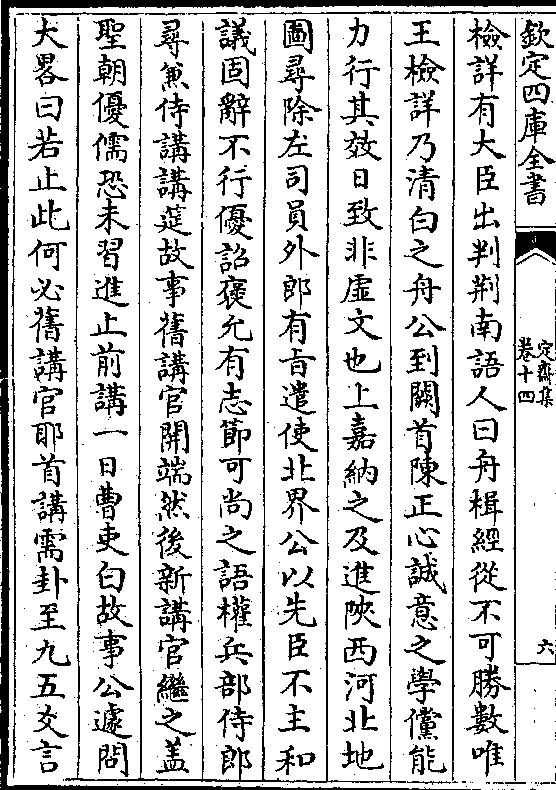 欽定四庫全書
定齋集
卷十四
六
檢詳有大臣出判荆南語人曰舟楫經從不可勝數唯
王檢詳乃清白之舟公到闕首陳正心誠意之學儻能
力行其效日致非虛文也上嘉納之及進陝西河北地
圖尋除左司員外郎有㫖遣使北界公以先臣不主和
議固辭不行優詔褒允有志節可尚之語權兵部侍郎
尋兼侍講講筵故事舊講官開端然後新講官繼之葢
聖朝優儒恐未習進止前講一日曹吏白故事公遽問
大畧曰若止此何必舊講官耶首講需卦至九五爻言